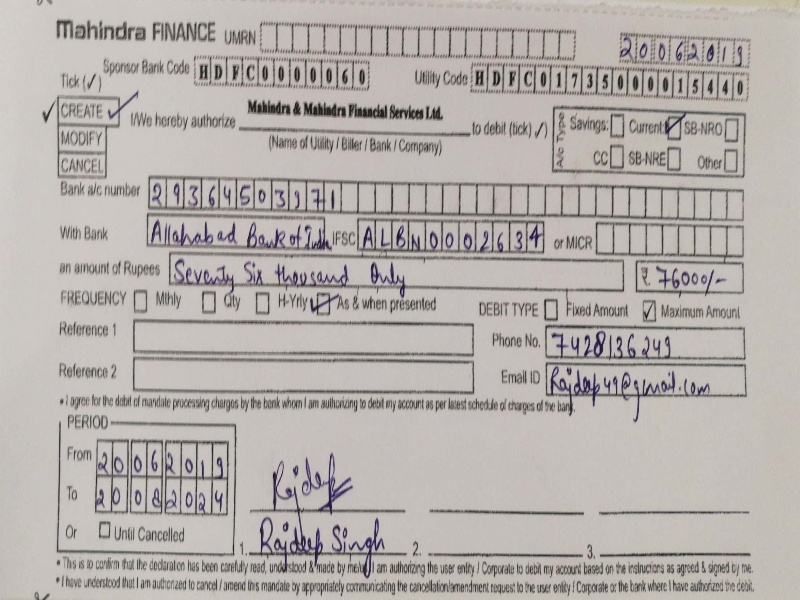 Mahindra FINANCE UMRN 20062019
Tick (✓) Sponsor Bank Code HDFC0000060 Utility Code HDFC01735000015440
CREATE ✓ I/We hereby authorize Mahindra & Mahindra Financial Services Ltd. to debit (tick ✓) A/c Type Savings: Current ✓ SB-NRO
MODIFY (Name of Utility / Biller / Bank / Company) CC SB-NRE Other
CANCEL
Bank a/c number 29364503971
With Bank Allahabad Bank of India IFSC ALBN0002634 or MICR
an amount of Rupees Seventy Six thousand Only ₹ 76000/-
FREQUENCY Mthly Qty H-Yrly ✓ As & when presented DEBIT TYPE Fixed Amount ✓ Maximum Amount
Reference 1 Phone No. 7428136249
Reference 2 Email ID Rajdeep49@gmail.com
• I agree for the debit of mandate processing charges by the bank whom I am authorizing to debit my account as per latest schedule of charges of the bank.
PERIOD
From 20062019
To 20082024 Rajdeep
Or Until Cancelled 1. Rajdeep Singh 2. 3.
• This is to confirm that the declaration has been carefully read, understood & made by me/us. I am authorizing the user entity / Corporate to debit my account based on the instructions as agreed & signed by me.
• I have understood that I am authorized to cancel / amend this mandate by appropriately communicating the cancellation/amendment request to the user entity / Corporate or the bank where I have authorized the debit.